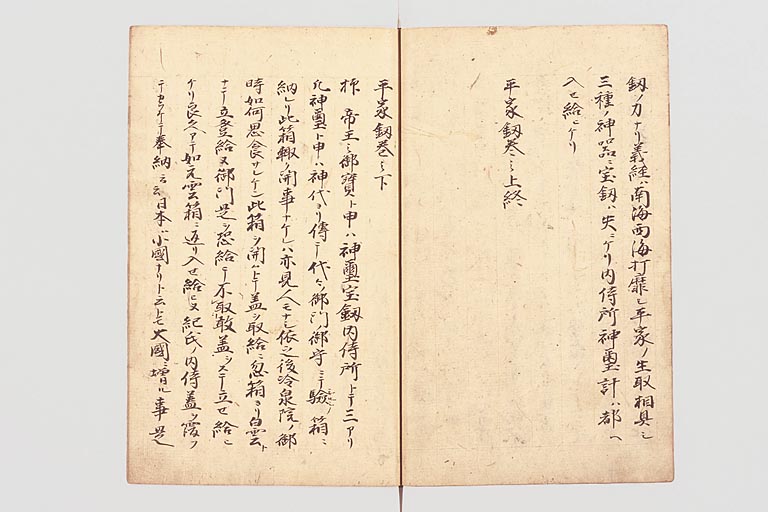 釼ノ刀ナリ義經ハ南海西海打靡シ平家ノ生取相具シ
三種ノ神器ニ宝釼ハ失ニケリ内侍所神璽計ハ都ヘ
入セ給ニケリ
平家釼巻之上終
平家釼巻之下
抑 帝王之御寶ト申ハ神璽宝釼内侍所トテ三アリ
凡神璽ト申ハ神代ヨリ傳テ代々ノ御門ノ御守ニテ驗ノ箱ニ
納メリ此箱輙ク開事ナケレハ亦見人モナシ依之後冷泉院ノ御
時如何思食サレケン此箱ヲ開ハトテ蓋ヲ取給ニ忽箱ヨリ白雲
ナニテ立登給ヌ御門是ヲ恐給テ不取敢蓋ヲ立セ給
ケリ良久アテ如元雲箱ニ返リ入セ給ニヌ紀氏ノ内侍蓋ヲ覆ヲ
テ奉納云云日本ハ小國ナリト云トモ大國ニ増ル事是